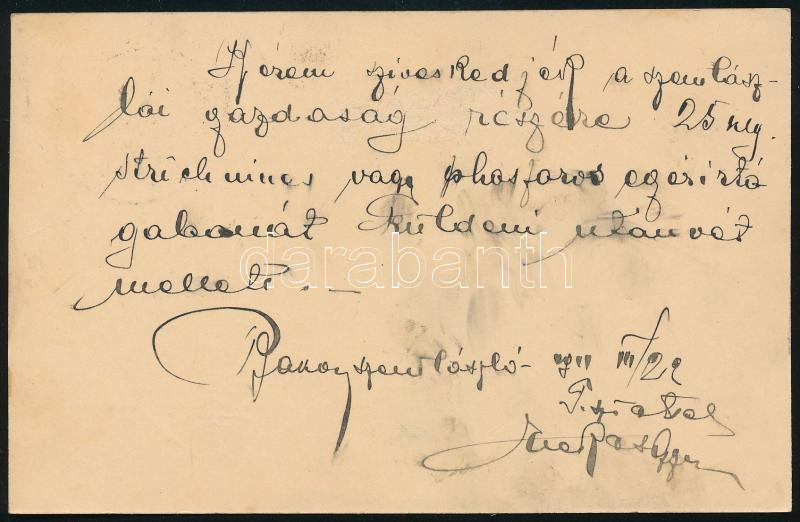 Kérem sziveskedjék a szentlász-
lói gazdaság részére 25 klg.
strichnines vagy phosforos egérirtó
gabonát küldeni utánvét
mellett. —
darabanth.com
Bakonyszentlászló 1911 III/22
T. sztisztelettel